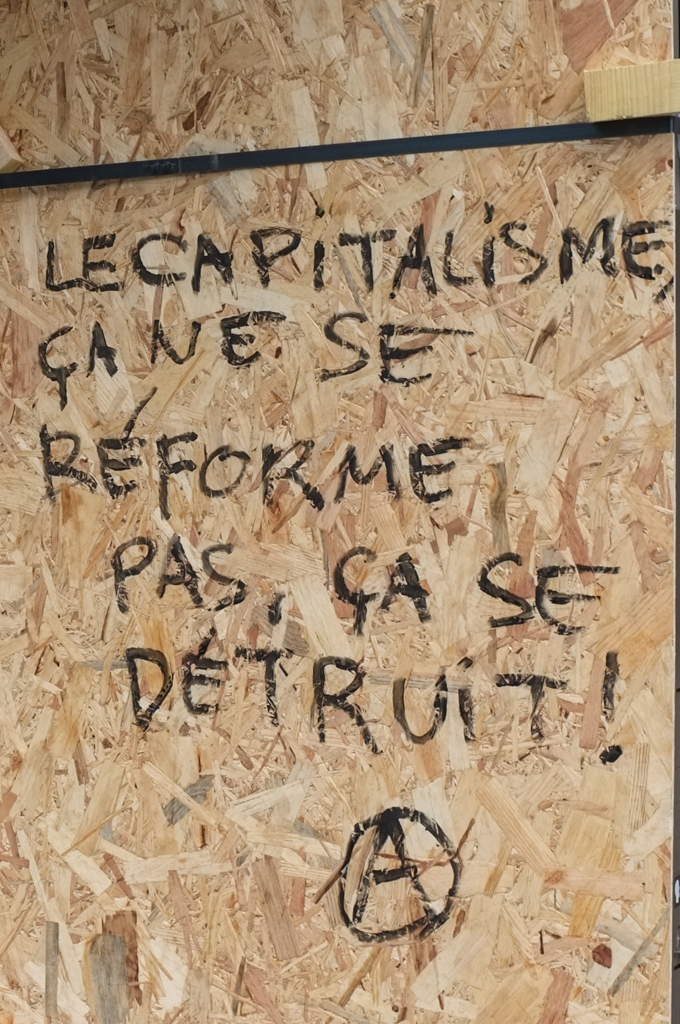 LE CAPITALISME,
ÇA NE SE
RÉFORME
PAS, ÇA SE
DÉTRUIT!
Ⓐ